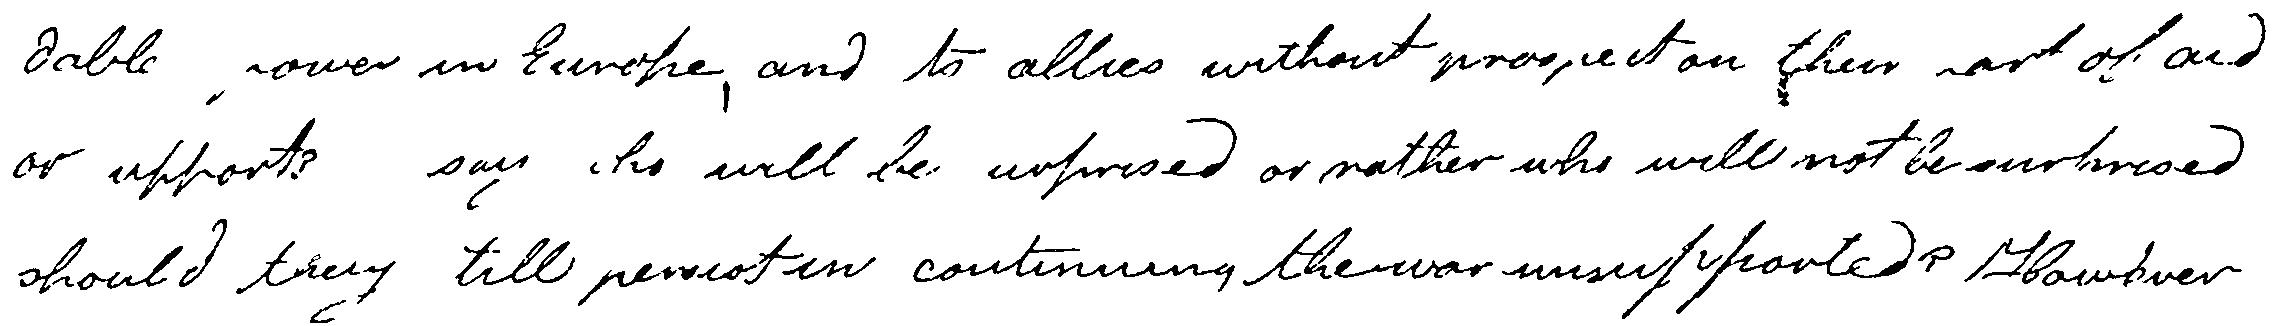 dable power in Europe, and to allies without prospect on their part of aid
or upport? say who will be urprised or rather who will not be surprised
should they till persist in continuing the war unsupported? However